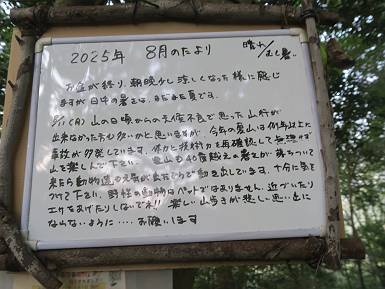 2025年 8月のたより 晴れ/むし暑い
お盆が終り、朝晩少し涼しくなった様に感じ
ますが日中の暑さは、まだまだ夏です。
8/11(月)山の日頃からの天候不良で思った山行が
出来なかった方も多いかと思いますが、今年の夏山は例年以上に
事故が多発しています。体力と技術力を再確認して無理せず
山を楽しんで下さい。里山も40度越えの暑さが落ちついて
来たら動物達の元気が出たようで動き出しています。十分に気を
つけて下さい。野性の動物はペットではありません。近づいたり
エサをあげたりしないでネ!! 楽しい山歩きが悲しい思い出に
ならないように・・・・お願いします